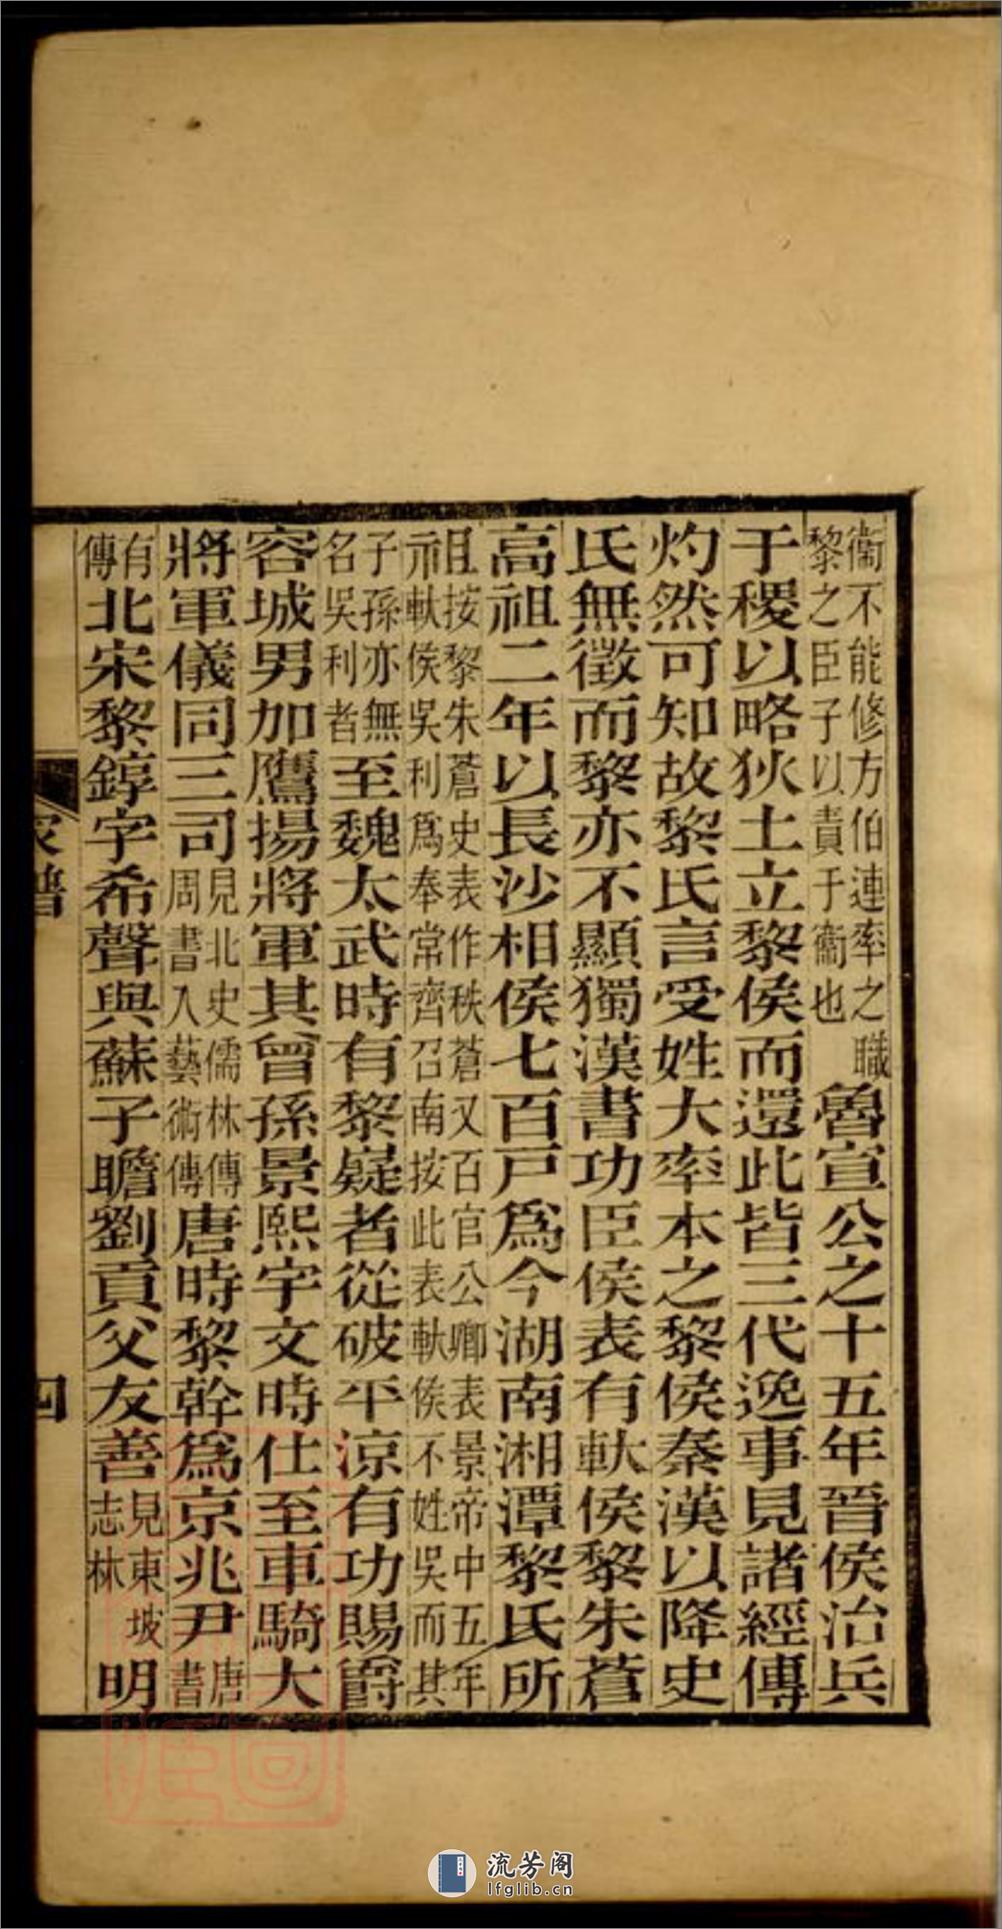 衞不能修方伯連率之職
黎之臣子以責于衞也
魯宣公之十五年晉侯治兵
于稷以略狄土立黎侯而還此皆三代逸事見諸經傳
灼然可知故黎氏言受姓大率本之黎侯秦漢以降史
氏無徵而黎亦不顯獨漢書功臣侯表有軑侯黎朱蒼
高祖二年以長沙相侯七百戸爲今湖南湘潭黎氏所
祖按黎朱蒼史表作秩蒼又百官公卿表景帝中五年
軑侯吳利爲奉常齊召南按此表軑侯不姓吳而其
子孫亦無
名吳利者
至魏太武時有黎嶷者從破平涼有功賜爵
容城男加鷹揚將軍其曾孫景熙宇文時仕至車騎大
將軍儀同三司
見北史儒林傳
周書入藝術傳
唐時黎幹爲京兆尹
唐書
有傳
北宋黎錞字希聲與蘇子瞻劉貢父友善
見東坡
志林
明
家譜
四
流芳阁
lfglib.cn